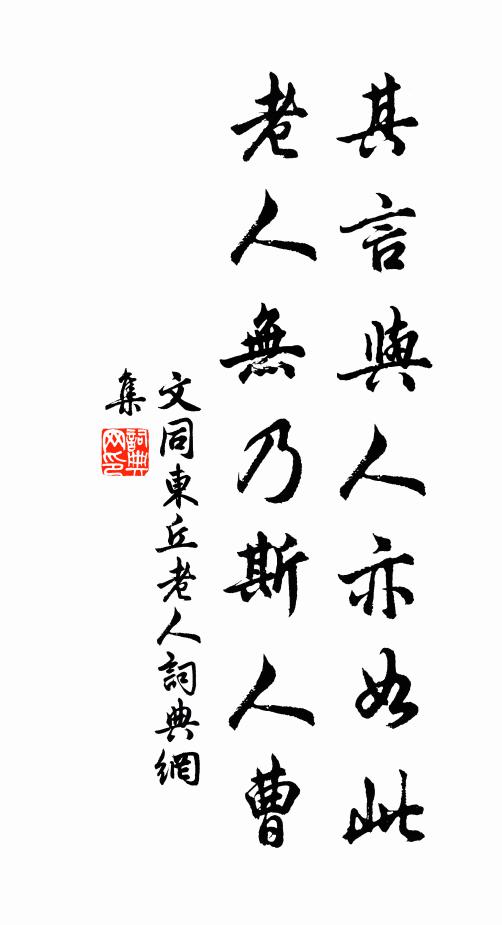 其言與人亦如此
老人無乃斯人曹
文同東丘老人詞典網
集
詞典网印